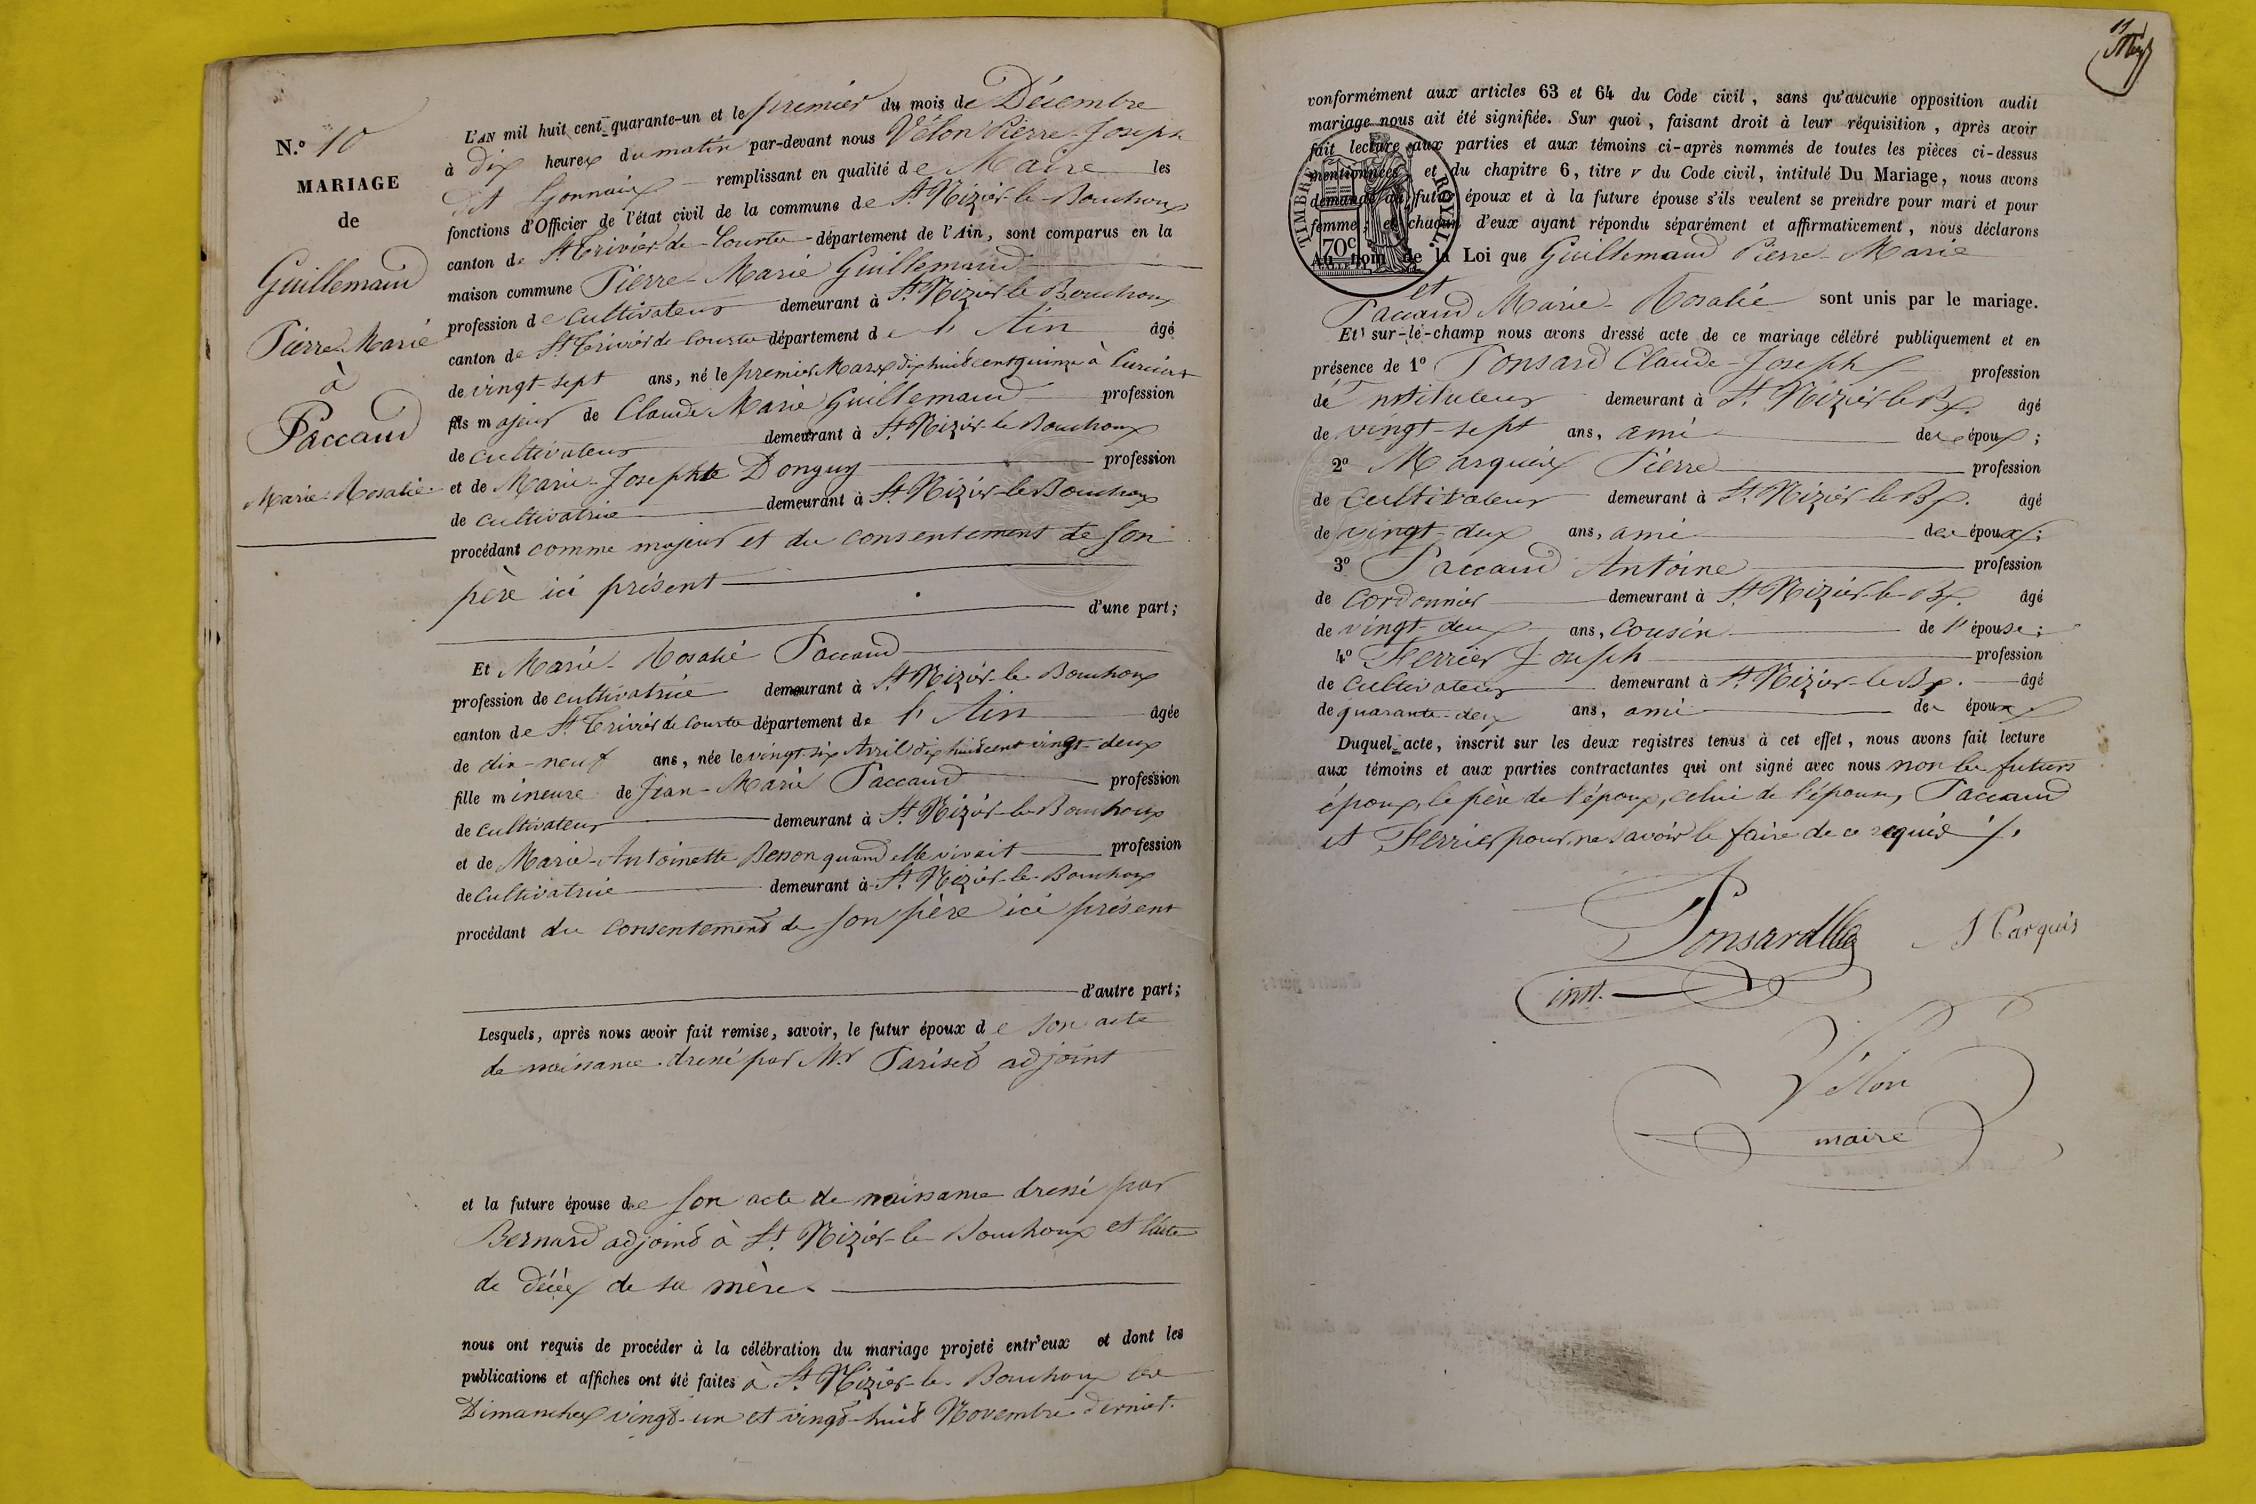 N.º 10
MARIAGE
de
Guillemaud
Pierre-Marie
à
Paccaud
Marie-Rosalie
L'AN mil huit cent quarante-un et le premier du mois de Décembre
à dix heures du matin par-devant nous Vélon Pierre-Joseph
dit Lyonnais remplissant en qualité de Maire les
fonctions d'Officier de l'état civil de la commune de St Nizier-le-Bouchoux
canton de St Trivier de Courtes département de l'Ain, sont comparus en la
maison commune Pierre-Marie Guillemaud
profession de cultivateur demeurant à St Nizier-le-Bouchoux
canton de St Trivier de Courtes département de l'Ain âgé
de vingt-sept ans, né le premier Mars dix huit cent quinze à Curciat
fils majeur de Claude Marie Guillemaud profession
de cultivateur demeurant à St Nizier-le-Bouchoux
et de Marie-Josephte Donguy profession
de cultivatrice demeurant à St Nizier-le-Bouchoux
procédant comme majeur et du consentement de son
père ici présent
d'une part;
Et Marie-Rosalie Paccaud
profession de cultivatrice demeurant à St Nizier-le-Bouchoux
canton de St Trivier de Courtes département de l'Ain âgée
de dix-neuf ans, née le vingt-six Avril dix huit cent vingt-deux
fille mineure de Jean-Marie Paccaud profession
de cultivateur demeurant à St Nizier-le-Bouchoux
et de Marie-Antoinette Besson quand elle vivait profession
de cultivatrice demeurant à St Nizier-le-Bouchoux
procédant du consentement de son père ici présent
d'autre part;
Lesquels, après nous avoir fait remise, savoir, le futur époux de son acte
de naissance dressé par Mr Pariset adjoint
et la future épouse de son acte de naissance dressé par
Bernard adjoint à St Nizier-le-Bouchoux et l'acte
de décès de sa mère
nous ont requis de procéder à la célébration du mariage projeté entr'eux et dont les
publications et affiches ont été faites à St Nizier-le-Bouchoux les
Dimanches vingt-un et vingt-huit Novembre dernier.
11
conformément aux articles 63 et 64 du Code civil, sans qu'aucune opposition audit
mariage nous ait été signifiée. Sur quoi, faisant droit à leur réquisition, après avoir
fait lecture aux parties et aux témoins ci-après nommés de toutes les pièces ci-dessus
mentionnées et du chapitre 6, titre v du Code civil, intitulé Du Mariage, nous avons
demandé au futur époux et à la future épouse s'ils veulent se prendre pour mari et pour
femme; et chacun d'eux ayant répondu séparément et affirmativement, nous déclarons
Au nom de la Loi que Guillemaud Pierre-Marie
et
Paccaud Marie-Rosalie sont unis par le mariage.
TIMBRE ROYAL.
70c
Et sur-le-champ nous avons dressé acte de ce mariage célébré publiquement et en
présence de 1º Ponsard Claude-Joseph profession
de Instituteur demeurant à St Nizier-le-Bx. âgé
de vingt-sept ans, ami des époux;
2º Marquis Pierre profession
de cultivateur demeurant à St Nizier-le-Bx. âgé
de vingt-deux ans, ami des époux;
3º Paccaud Antoine profession
de Cordonnier demeurant à St Nizier-le-Bx. âgé
de vingt-deux ans, Cousin de l'épouse;
4º Ferrier Joseph profession
de cultivateur demeurant à St Nizier-le-Bx. âgé
de quarante-deux ans, ami des époux
Duquel acte, inscrit sur les deux registres tenus à cet effet, nous avons fait lecture
aux témoins et aux parties contractantes qui ont signé avec nous non les futurs
époux, le père de l'époux, celui de l'épouse, Paccaud
et Ferrier pour ne savoir le faire de ce requis
Ponsard
Marquis
inst.
Vélon
maire